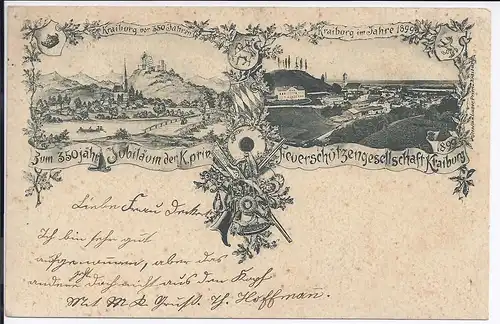 Kraiburg vor 350 Jahren
Kraiburg im Jahre 1899
Zum 350jähr. Jubiläum der K. priv. Feuerschützengesellschaft Kraiburg
1899
Liebe Frau
Ich bin sehr gut
aufgenommen, aber das
andere doch nicht aus den Kopf
Mit Gruß. Th. Hoffmann.